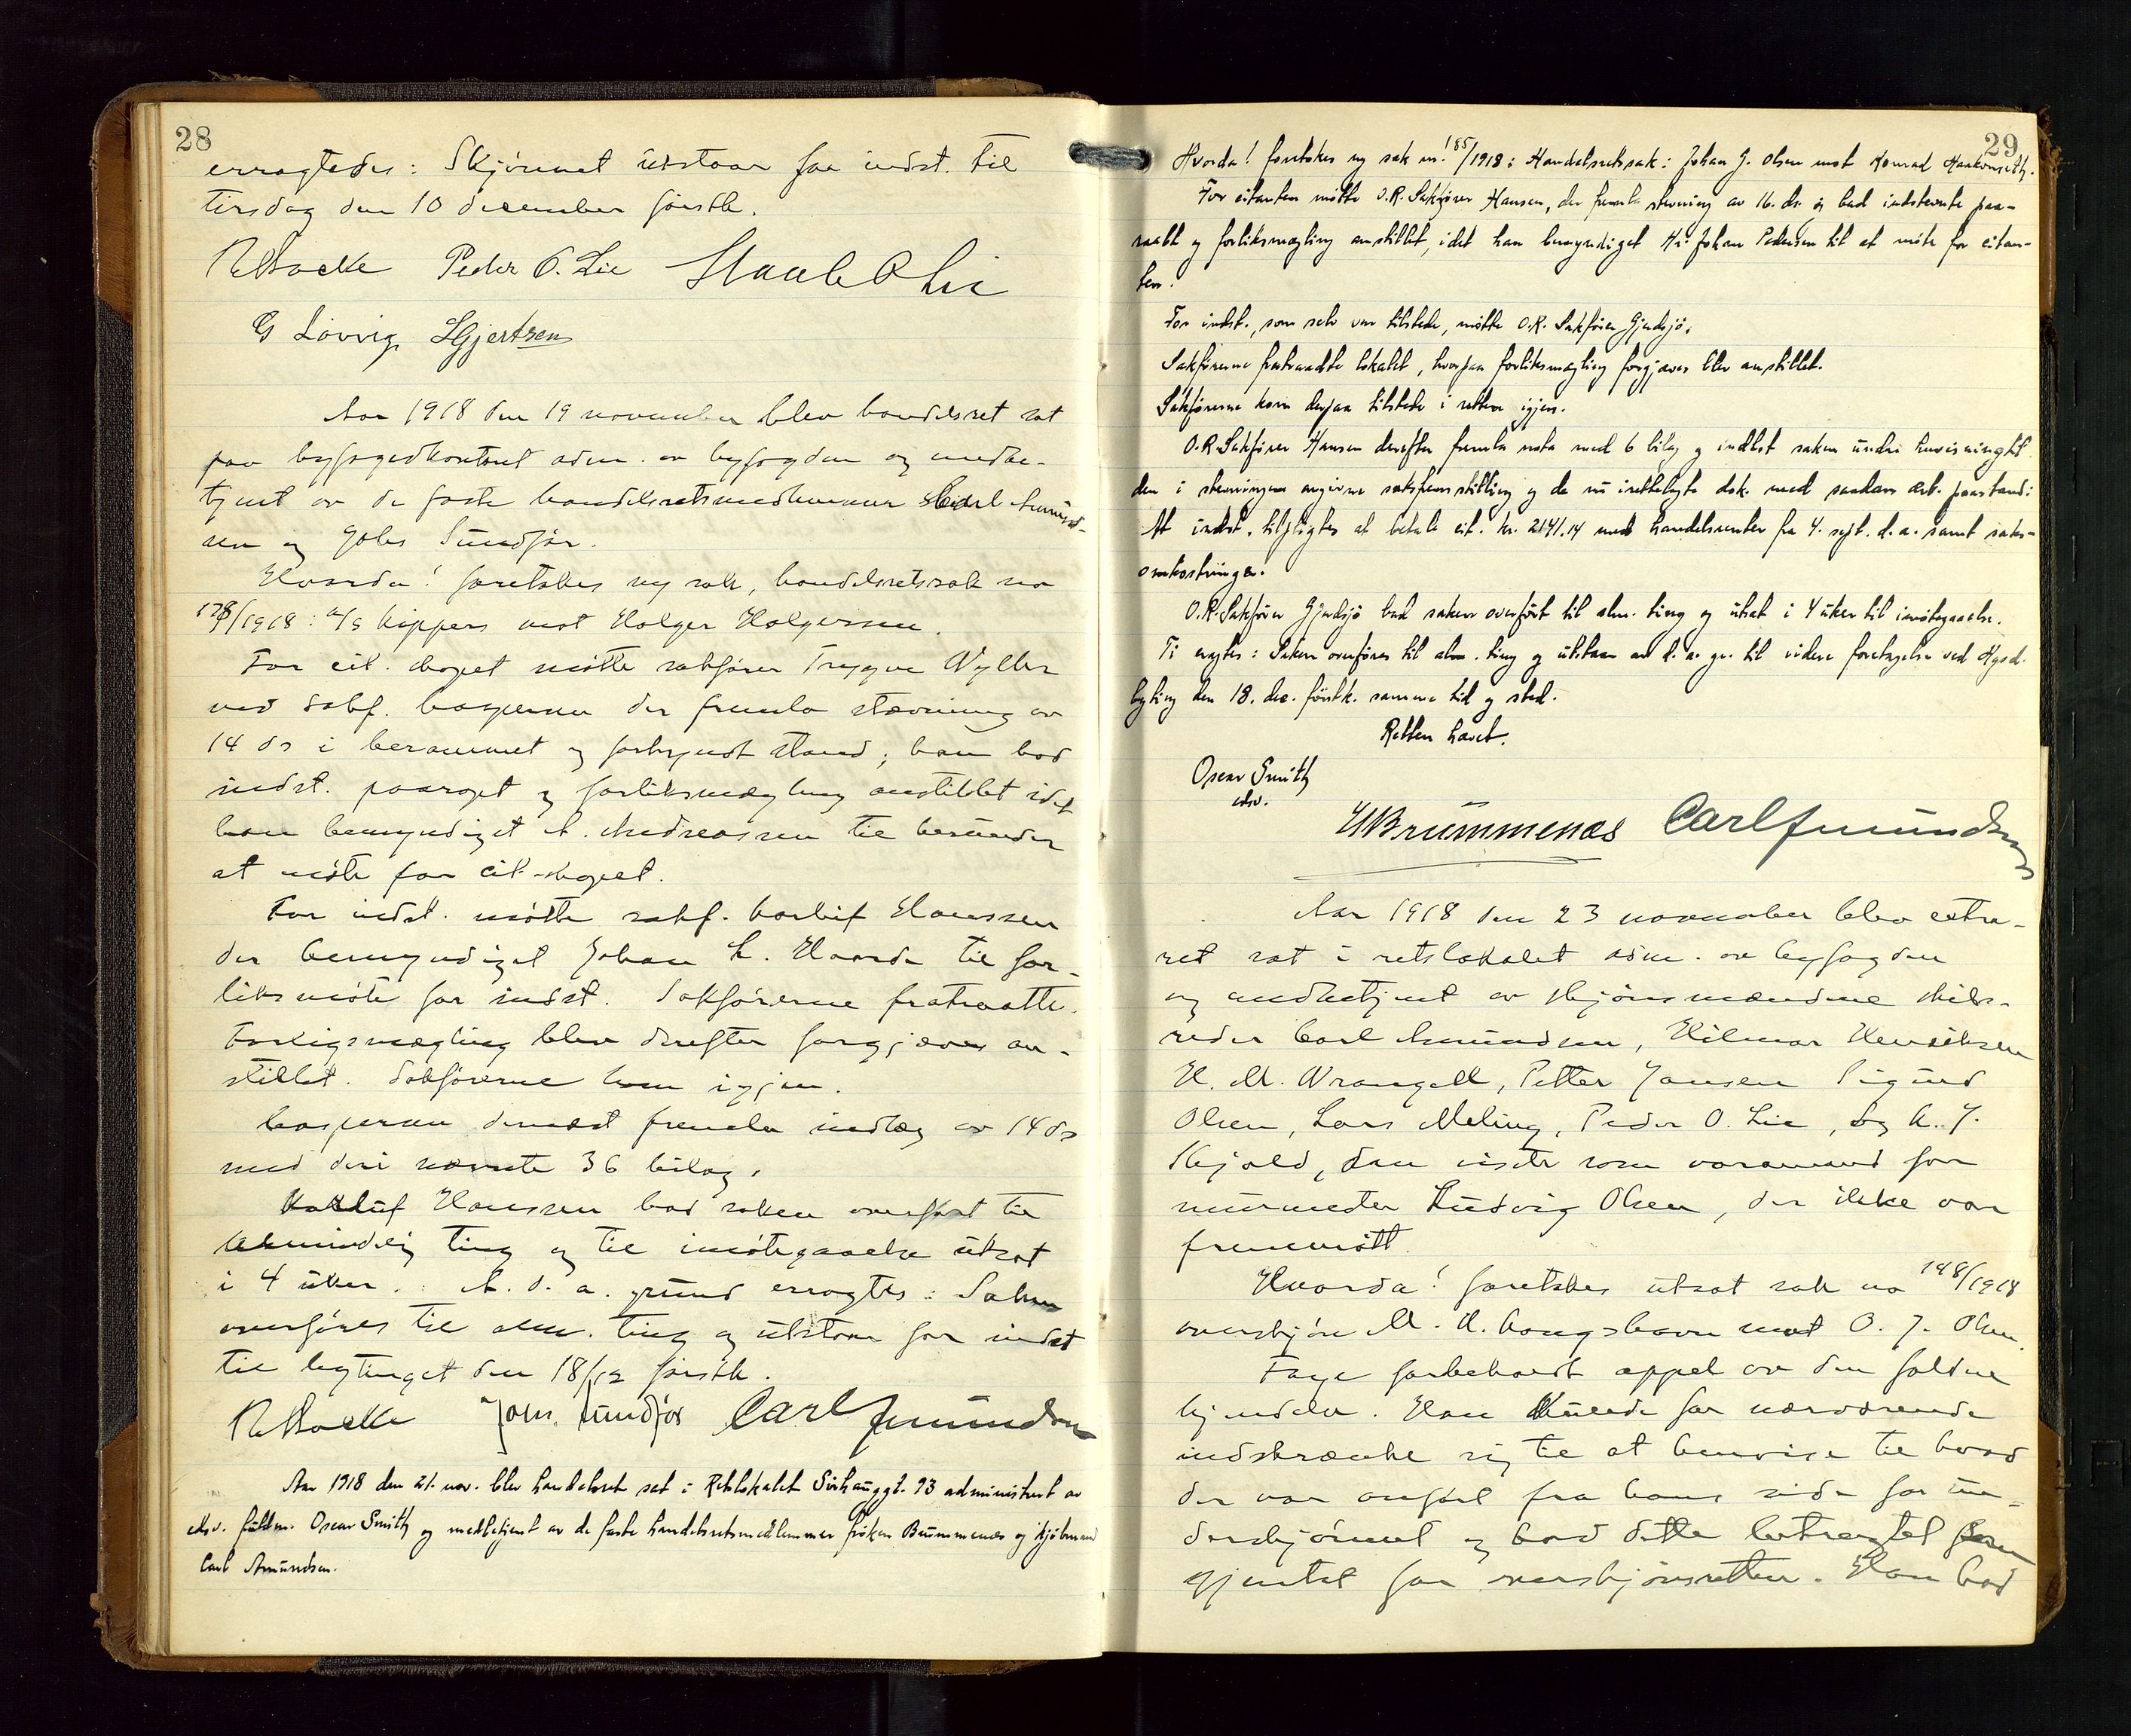 28
erragtedes: Skjönnet utstaar for indst. til
tirsdag den 10 december förstk.
Peder O. Lie
G Lövvig, SGjertsen
Aar 1918 den 19 november blev handelsret sat
paa byfogedkontoret adm. av byfogden og medbe-
tjent av de faste handelsretsmedlemmer Carl Amund-
sen og Johs Sundför.
Hvorda! foretokes ny sak, handelsretssak no
178/1918: a/s Kippers mot Holger Holgersen.
For cit. skapet mötte sakförer Trygve Wyller
ved sakf. Caspersen der fremla stævning av
14 ds i berammet og forkyndt stand; han bad
indst. paaropt og forliksmægling anstillet idet
han bemyndiget A. Andreassen til herunder
at möte for cit-skapet.
For indst. mötte sakf. Cortluf Hanssen
der bemyndiget Johan L. Haarde til for-
liksmöte for indst. Sakförerne fratraatte.
Forligsmægling blev derefter forgjæves an-
stillet. Sakförerne kom igjen.
Caspersen dernæst fremla indlæg av 14 ds
med deri nævnte 36 bilag.
Hanssen bad saken overfört til
almindelig ting og til imötegaaelse utsat
i 4 uker. A. d. a. grund erragtes: Saken
overföres til alm. ting og utstaar for indst
til bytinget den 18/12 förstk.
Johs. Sundför Carl Amundsen
Aar 1918 den 21. nov. blev handelsret sat i Retslokalet Sörhauggt. 93 administrert av
edsv. fuldm. Oscar Smith og medbetjent av de faste handelsretsmedlemmer fröken Brummenæs og kjöbmand
Carl Amundsen.
29
Hvorda! foretokes ny sak nr. 185/1918: Handelsretssak: Johan J. Olsen mot Konrad Haakonseth.
For citanten mötte O.R. Sakförer Hansen, der fremla stevning av 16. ds. og bad indstevnte paa-
raabt og forliksmægling anstillet, idet han bemyndiget Hr. Johan Pedersen til at möte for citan-
ten.
For indst., som selv var tilstede, mötte O.R. Sakförer Gjerdsjö.
Sakförerne fratraadte lokalet, hvorpaa forliksmægling forgjæves blev anstillet.
Sakförerne kom derpaa tilstede i retten igjen.
O.R. Sakförer Hansen derefter fremla nota med 6 bilag og indlot saken under henvisning til
den i stevningen angivne saksfremstilling og de nu irettelagte dok. med saadan ærb. paastand:
At indst. tilpligtes at betale cit. kr. 2141.14 med handelsrenter fra 4. sept. d.a. samt saks-
omkostninger.
O.R. Sakförer Gjerdsjö bad saken overfört til alm. ting og utsat i 4 uker til imötegaaelse.
Ti eragtes: Saken overföres til alm. ting og utstaar av d. a. gr. til videre foretagelse ved Hgsd.
byting den 18. dec. förstk. samme tid og sted.
Retten hævet.
Oscar Smith
edsv.
Brummenæs Carl Amundsen
Aar 1918 den 23 november blev extra-
ret sat i retslokalet adm. av byfogden
og medbetjent av skjönsmændene skibs-
reder Carl Amundsen, Hilmar Henriksen
H. M. Wrangell, Petter Jansen Sigurd
Olsen, Lars Meling, Peder O. Lie, og A. J.
Skjold, den siste som varamand for
murmester Ludvig Olsen, der ikke var
fremmött.
Hvorda! foretokes utsat sak no 148/1918
overskjön M. A. Haugshavn mot O. J. Olsen.
Fage forbeholdt appel av den faldne
kjendelse. Han skulde for nærværende
indskrænke sig til at henvise til hvad
der var anfört fra hans side for un-
derskjönnet og bad dette betragtet som
gjentat for overskjönsretten. Han bad